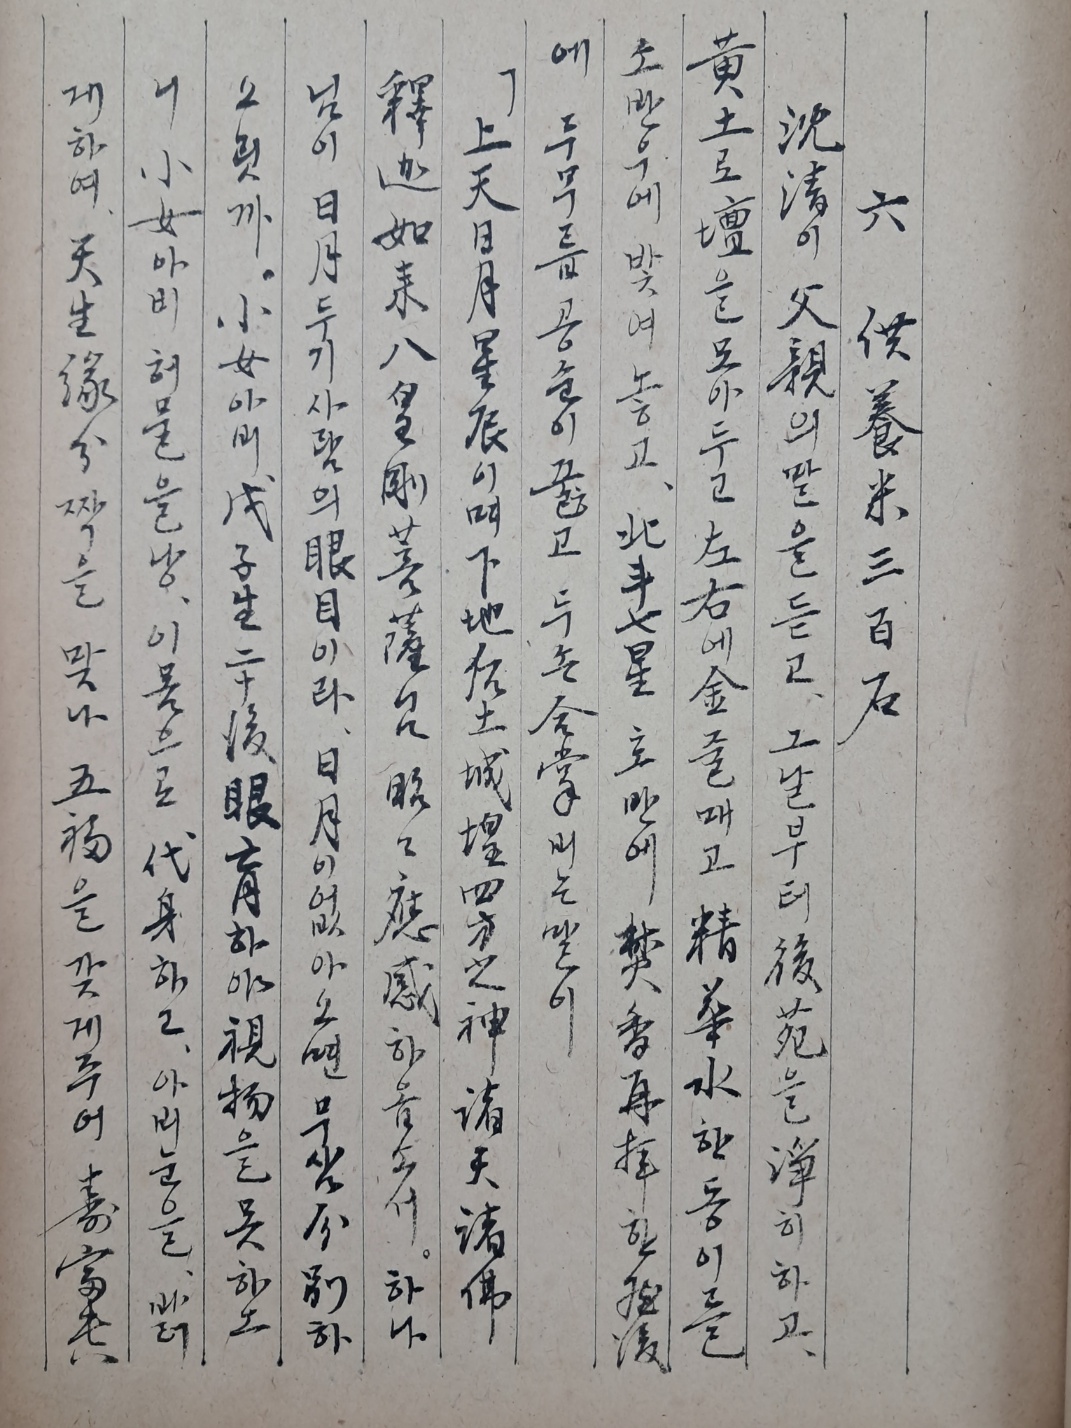 六 供養米三百石
沈清이 父親의 말을 듣고、그날부터 後苑을 淨히하고、
黃土로 壇을 모아두고 左右에 金줄매고 精華水 한동이를
소반우에 밧여 놓고、北斗七星 호반에 焚香再拜한 然後
에 두무릎 공손이 꿀고 두손 合掌 비는말이
「上天日月星辰이며 下地后土城堭四方之神 諸天諸佛
釋迦如来 八皇剛菩薩님 昭々應感하옵소서。하나
님이 日月두기 사람의 眼目이라、日月이없아오면 무삼分別하
오릿까。小女아비 戊子生 二十後 眼盲하야 視物을 못하오
니 小女아비 허물을낭、이몸으로 代身하고、아비눈을、밝
게하여、天生緣分 짝을 맞나 五福을 갖게주어 壽富貴